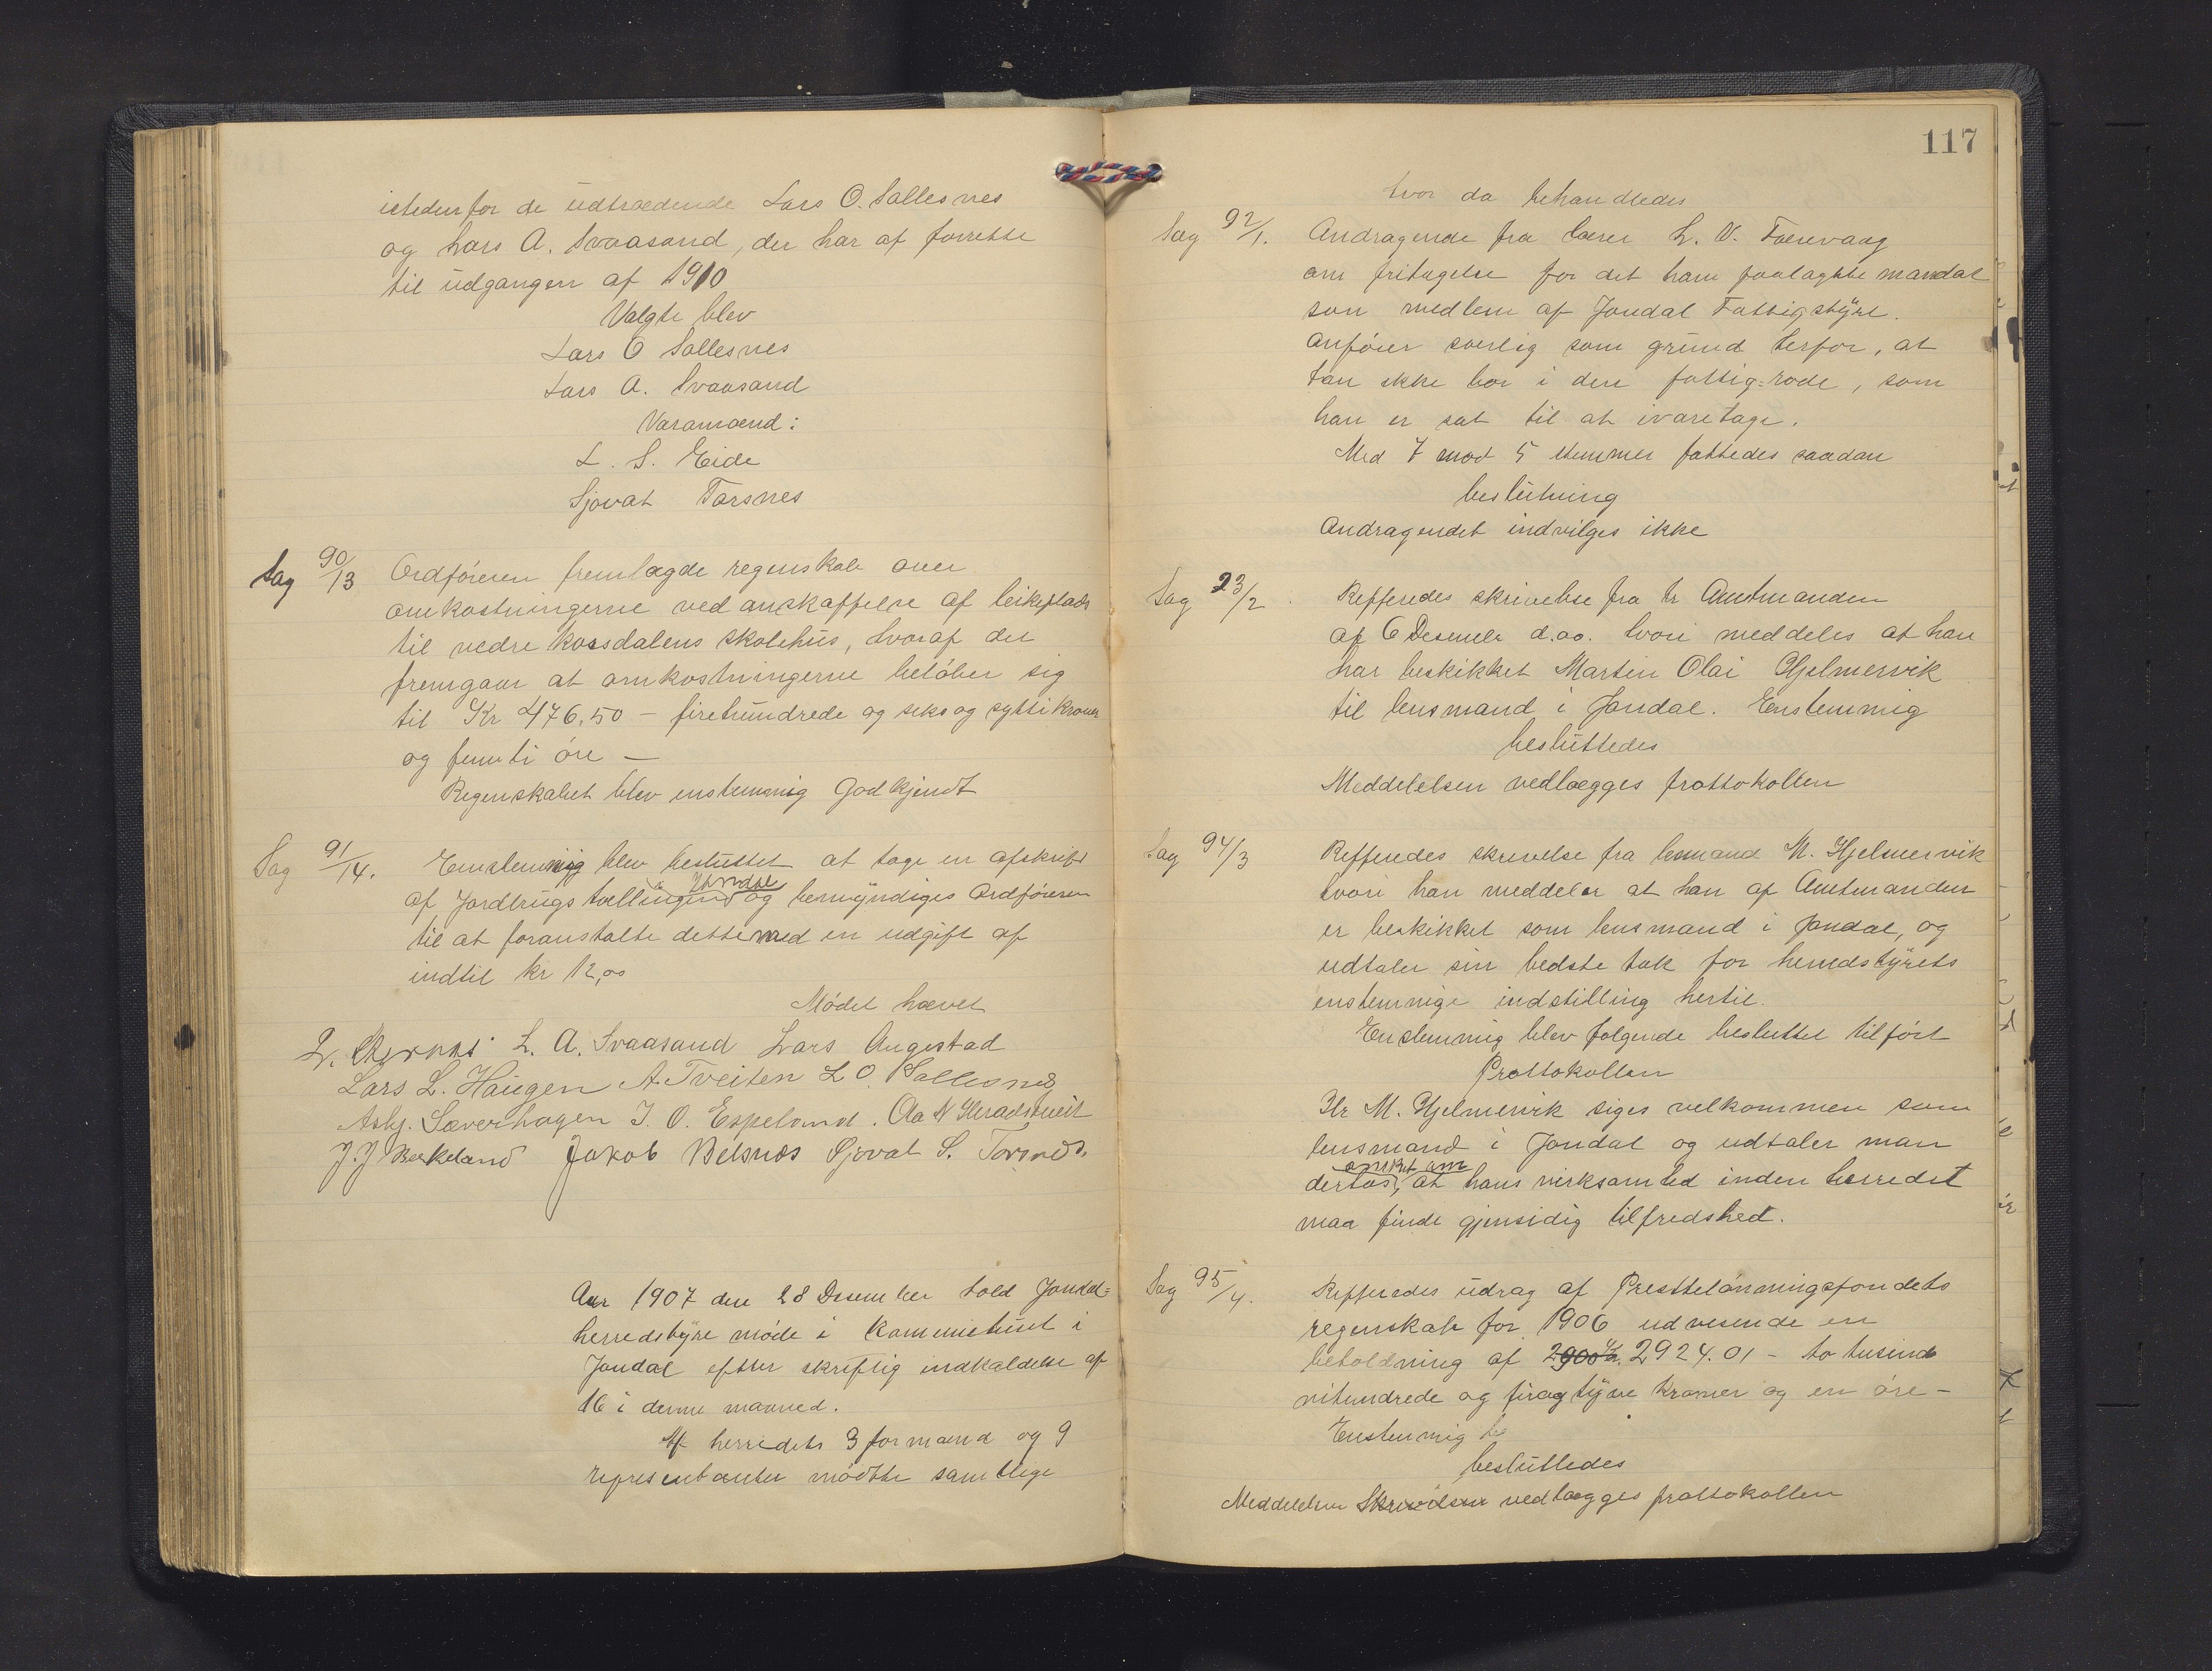 istedenfor de udtrædende Lars O. Sallesnes
og Lars A. Svaasand, der har at forrette
til udgangen af 1910
Valgte blev
Lars O Sallesnes
Lars A. Svaasand
Varamænd:
L. S. Eide
Sjovat Torsnes
Sag 90/13 Ordføreren fremlagde regnskab over
omkostningerne ved anskaffelse af leikeplads
til nedre Korsdalens skolehus, hvoraf det
fremgaar at omkostningerne beløber sig
til Kr 476,50 - firehundrede og seks og sytti kroner
og femti øre -
Regnskabet blev enstemmig Godkjendt
Sag 91/14. Enstemmig blev besluttet at tage en afskrift
af Jordbrugstællingen i Jondal og bemyndiges Ordføreren
til at foranstalte dette med en udgift af
indtil kr 12,00
Mødet hævet
L. A. Svaasand Lars Augestad
Lars L. Haugen A. Tveiten L O. Sallesnes
Asbj. Sæverhagen J. O. Espeland. Ola N Heradstveit
J. J Birkeland Jakob Belsnes Sjovat S. Torsnes.
Aar 1907 den 28 Desember hold Jondal=
herredstyre møde i Kommunehuset i
Jondal efter skriftlig indkaldelse af
16 i denne maaned.
Af herredets 3 formænd og 9
representanter mødte samtlige
117
hvor da behandledes
Sag 92/1. Andragende fra lærer L. V. Folkevaag
om fritagelse for det ham paalagte mandat
som medlem af Jondal Fattigstyre.
Anfører særlig som grund herfor, at
han ikke bor i den fattig=rode, som
han er sat til at ivaretage.
Med 7 mod 5 stemmer fattedes saadan
beslutning
Andragendet indvilges ikke
Sag 93/2. Refferedes skrivelse fra hr Amtmanden
af 6 Desember d.aa. hvori meddeles at han
har beskikket Martin Olai Hjelmervik
til lensmand i Jondal. Enstemmig
besluttedes
Meddelelsen vedlægges prottokollen
Sag 94/3 Refferedes skrivelse fra lensmand M. Hjelmervik
hvori han meddeler at han af Amtmanden
er beskikket som lensmand i Jondal, og
udtaler sin bedste tak for herredstyrets
enstemmige indstilling hertil.
Enstemmig blev følgende besluttet tilført
Prottokollen
Hr M. Hjelmervik siges velkommen som
lensmand i Jondal og udtaler man
ønsket om
derhos, at hans virksomhed inden herredet
maa finde gjensidig tilfredshed.
Sag 95/4. Refferedes udrag af Presteløningsfondets
regnskab for 1906 udvisende en
beholdning af 2900 kr. 2924.01 - to tusind
nihundrede og fireogtyve kroner og en øre -
Enstemmig be
besluttedes
Meddelelsen Skrivelsen vedlægges prottokollen